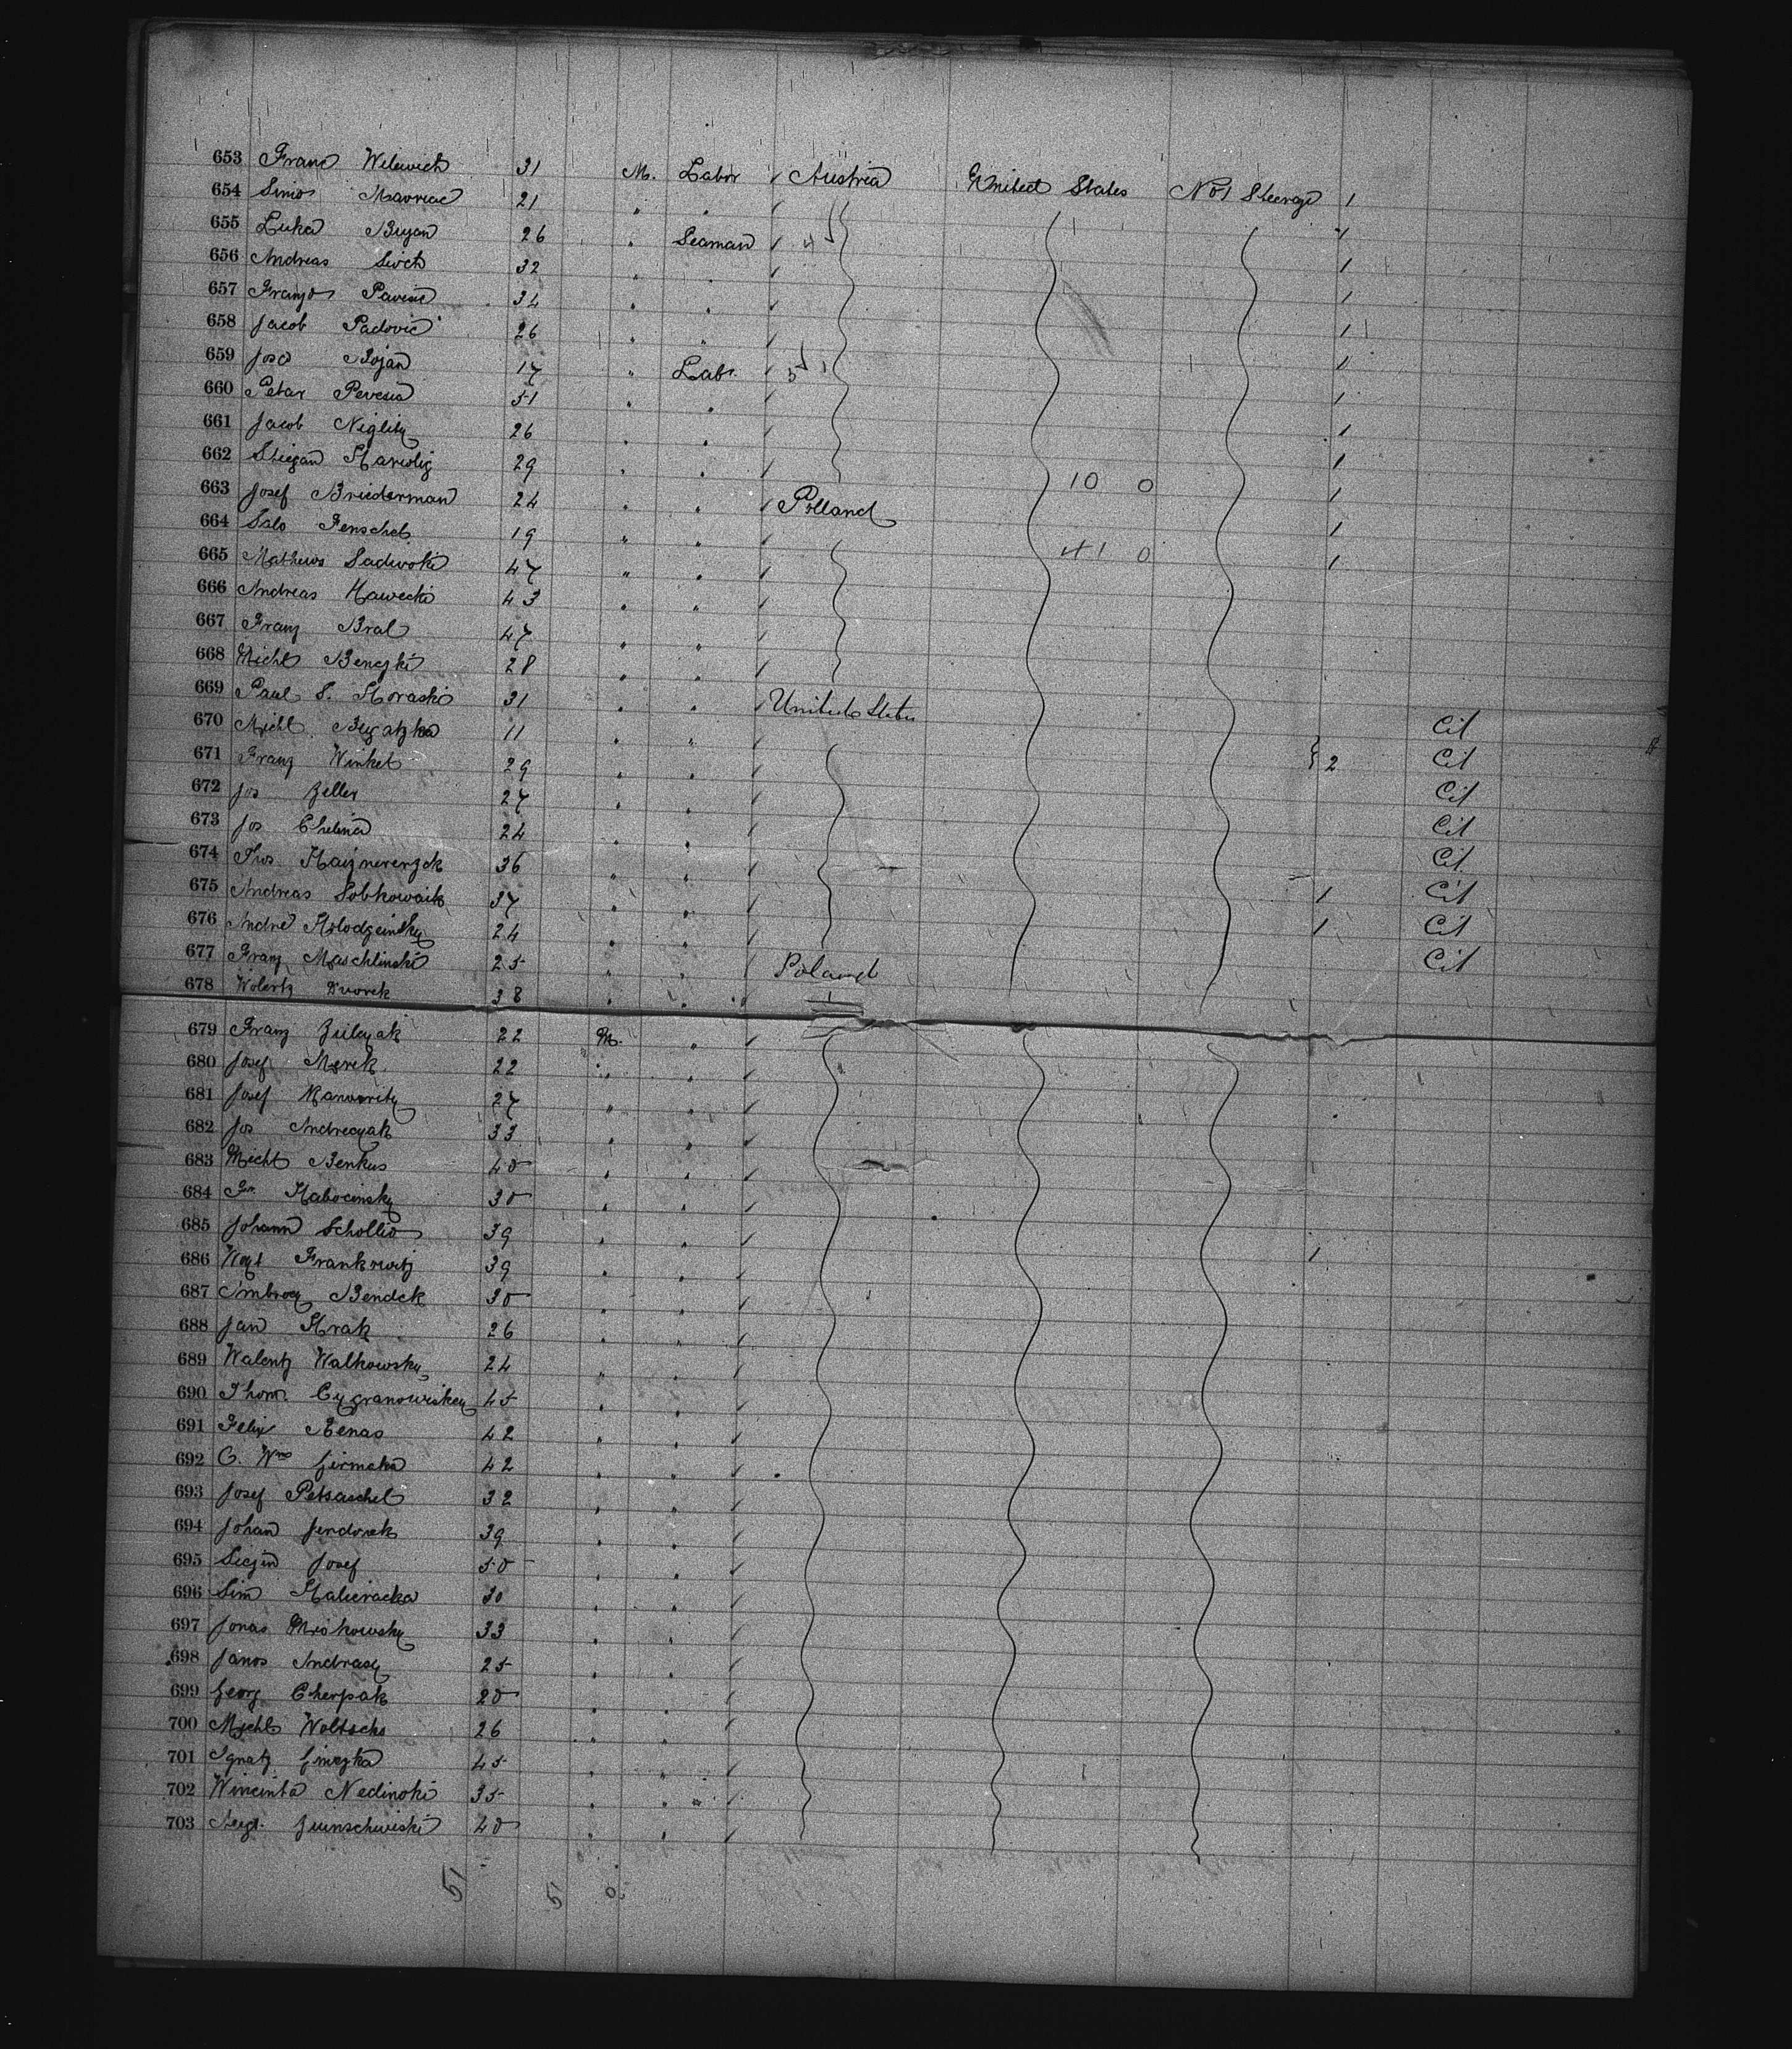 653 Franc Wilewich 31 M. Labor Austria United States No 1 Steerage 1
654 Simo Mavreac 21 " "
655 Luka Buyan 26 " Seaman 4 1
656 Andreas Sirch 32 " 1
657 Franjo Pavesic 34 " " 1
658 Jacob Padovic 26 " " 1
659 Josd Bojan 17 " Labr. 5 1
660 Petar Pevesia 51 " " 1
661 Jacob Niglitz 26 " " 1
662 29 " " 1
663 Josef Briederman 24 " " Polland 10 0 1
664 Salo Fenschel 19 " " 1
665 Mathews Sadwoki 47 " " 41 0 1
666 Andreas Hawecki 43 " "
667 Franz Bral 47 " "
668 Michl Benczki 28 " "
669 Paul S. Horaski 31 " " United States
670 Michl 11 " " Cit
671 Franz Winkel 29 " " } 2 Cit
672 Jos Zeller 27 " " Cit
673 Jos Chelina 24 " " Cit
674 Thos. 36 " " Cit
675 Andreas Sobkowaik 37 " " 1 Cit
676 Andre 24 " " 1 Cit
677 Franz Maschlinski 25 " " Poland Cit
678 Wolentz Dvorek 38 " "
679 Franz 22 M. "
680 Josef Merek 22 " "
681 Josef 27 " "
682 Jos Andreczak 33 " "
683 Michl Benkus 40 " "
684 Fr. Kabocinsky 30 " "
685 Johann Schollio 39 " "
686 Frankowitz 39 " " 1
687 Ambrocz Bendek 30 " "
688 Jan Krak 26 " "
689 Walentz Walkowsky 24 " "
690 Thom. Cygranowiskey 45 " "
691 Felix Benas 42 " "
692 C. Wm Girmaka 42 " "
693 Josef Petsaschel 32 " "
694 Johan Jendorek 39 " "
695 Josef 50 " "
696 Sim Kalieracka 30 " "
697 Jonas Miskowsky 33 " "
698 Janos Andrasy 25 " "
699 Georg Cherpak 20 " "
700 Michl Woltschs 26 " "
701 Ignatz Ginezka 45 " "
702 Wincinta Nedinoki 35 " "
703 Augt. Juinschwiski 40 " "
51 51 0